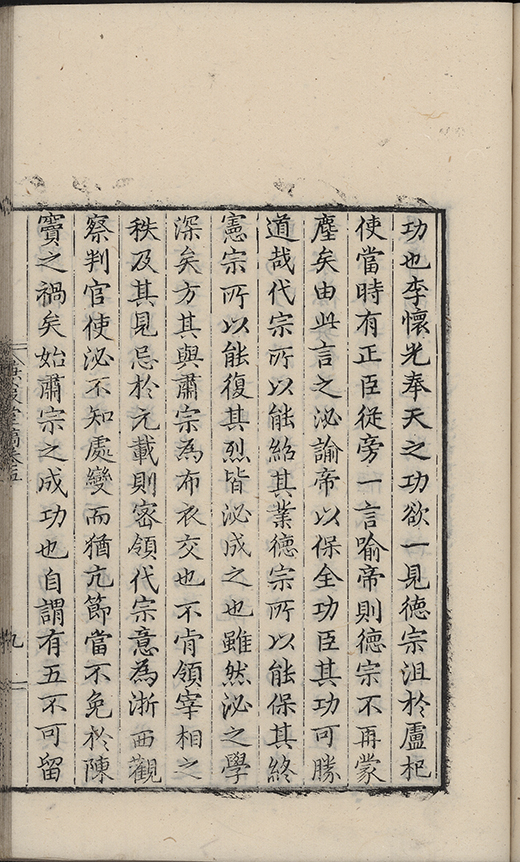 功也李懷光奉天之功欲一見徳宗沮扵盧杞
使當時有正臣從旁一言喻帝則德宗不再蒙
塵矣由此言之泌諭帝以保全功臣其功可勝
道哉代宗所以能紹其業德宗所以能保其終
憲宗所以能復其烈皆泌成之也雖然泌之學
深矣方其與肅宗為布衣交也不肯領宰相之
秩及其見忌扵元載則密領代宗意為浙西觀
察判官使泌不知處變而猶亢節當不免扵陳
竇之禍矣始肅宗之成功也自謂有五不可留
九